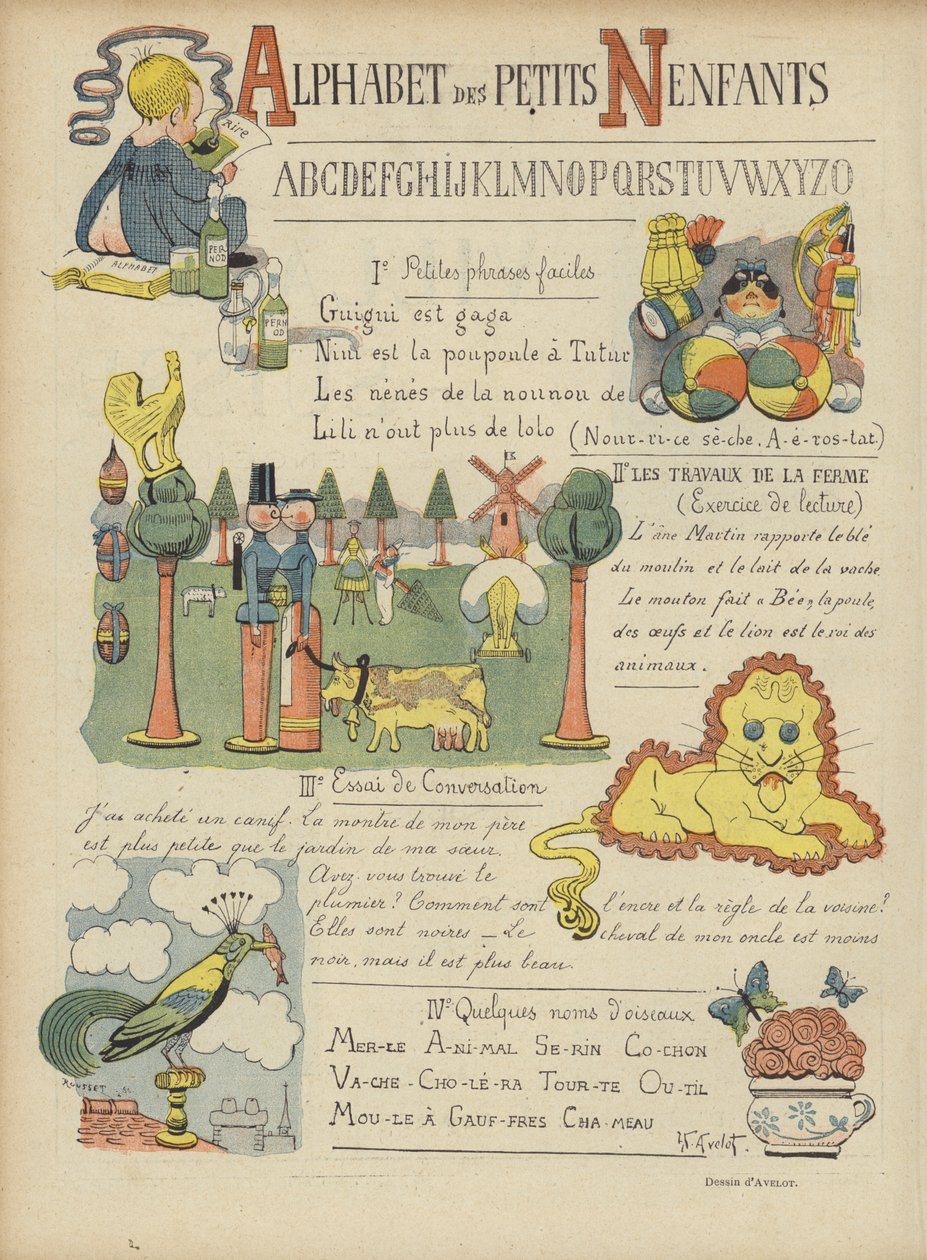 ALPHABET DES PETITS NENFANTS
Rire
ABCDEFGHIJKLMNOPQRSTUVWXYZO
PERNOD
ALPHABET
PERNOD
I° Petites phrases faciles
Guigui est gaga
Nini est la poupoule à Tutur
Les nénés de la nounou de
Lili n'ont plus de lolo
(Nour-ri-ce sè-che. A-é-ros-tat.)
II° LES TRAVAUX DE LA FERME
(Exercice de lecture)
L'âne Martin rapporte le blé
du moulin et le lait de la vache.
Le mouton fait « Bée », la poule,
des œufs et le lion est le roi des
animaux.
III° Essai de Conversation
J'ai acheté un canif. La montre de mon père
est plus petite que le jardin de ma sœur.
Avez-vous trouvé le
plumier? Comment sont l'encre et la règle de la voisine?
Elles sont noires – Le cheval de mon oncle est moins
noir, mais il est plus beau.
IV° Quelques noms d'oiseaux
MER-LE A-NI-MAL SE-RIN CO-CHON
VA-CHE - CHO-LÉ-RA TOUR-TE OU-TIL
MOU-LE À GAUF-FRES CHA-MEAU
ROUSSET
H. Avelot.
Dessin d'AVELOT.